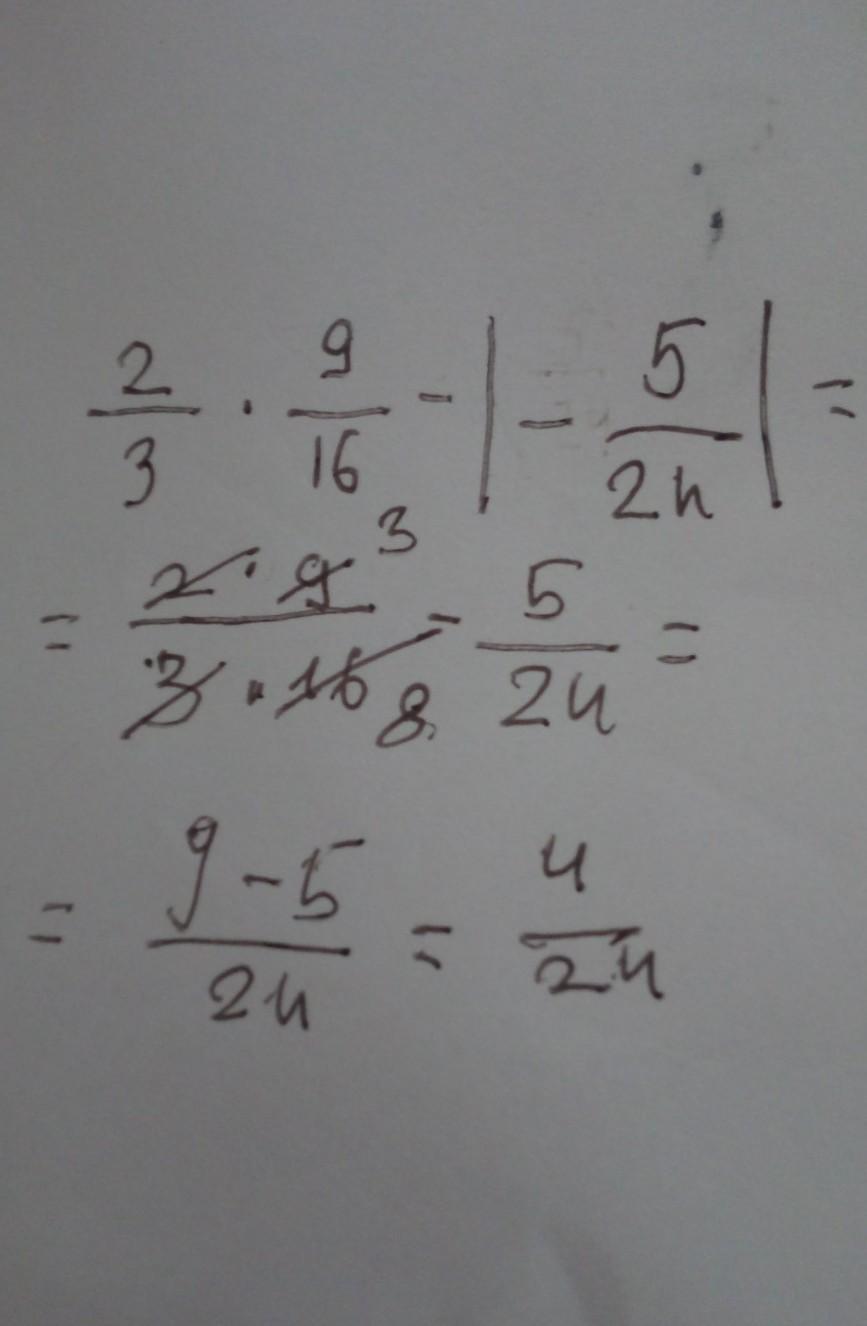 2/3 · 9/16 - |- 5/24| =
= 2 · 9 3/3 · 16 8 - 5/24 =
= 9 - 5/24 = 4/24